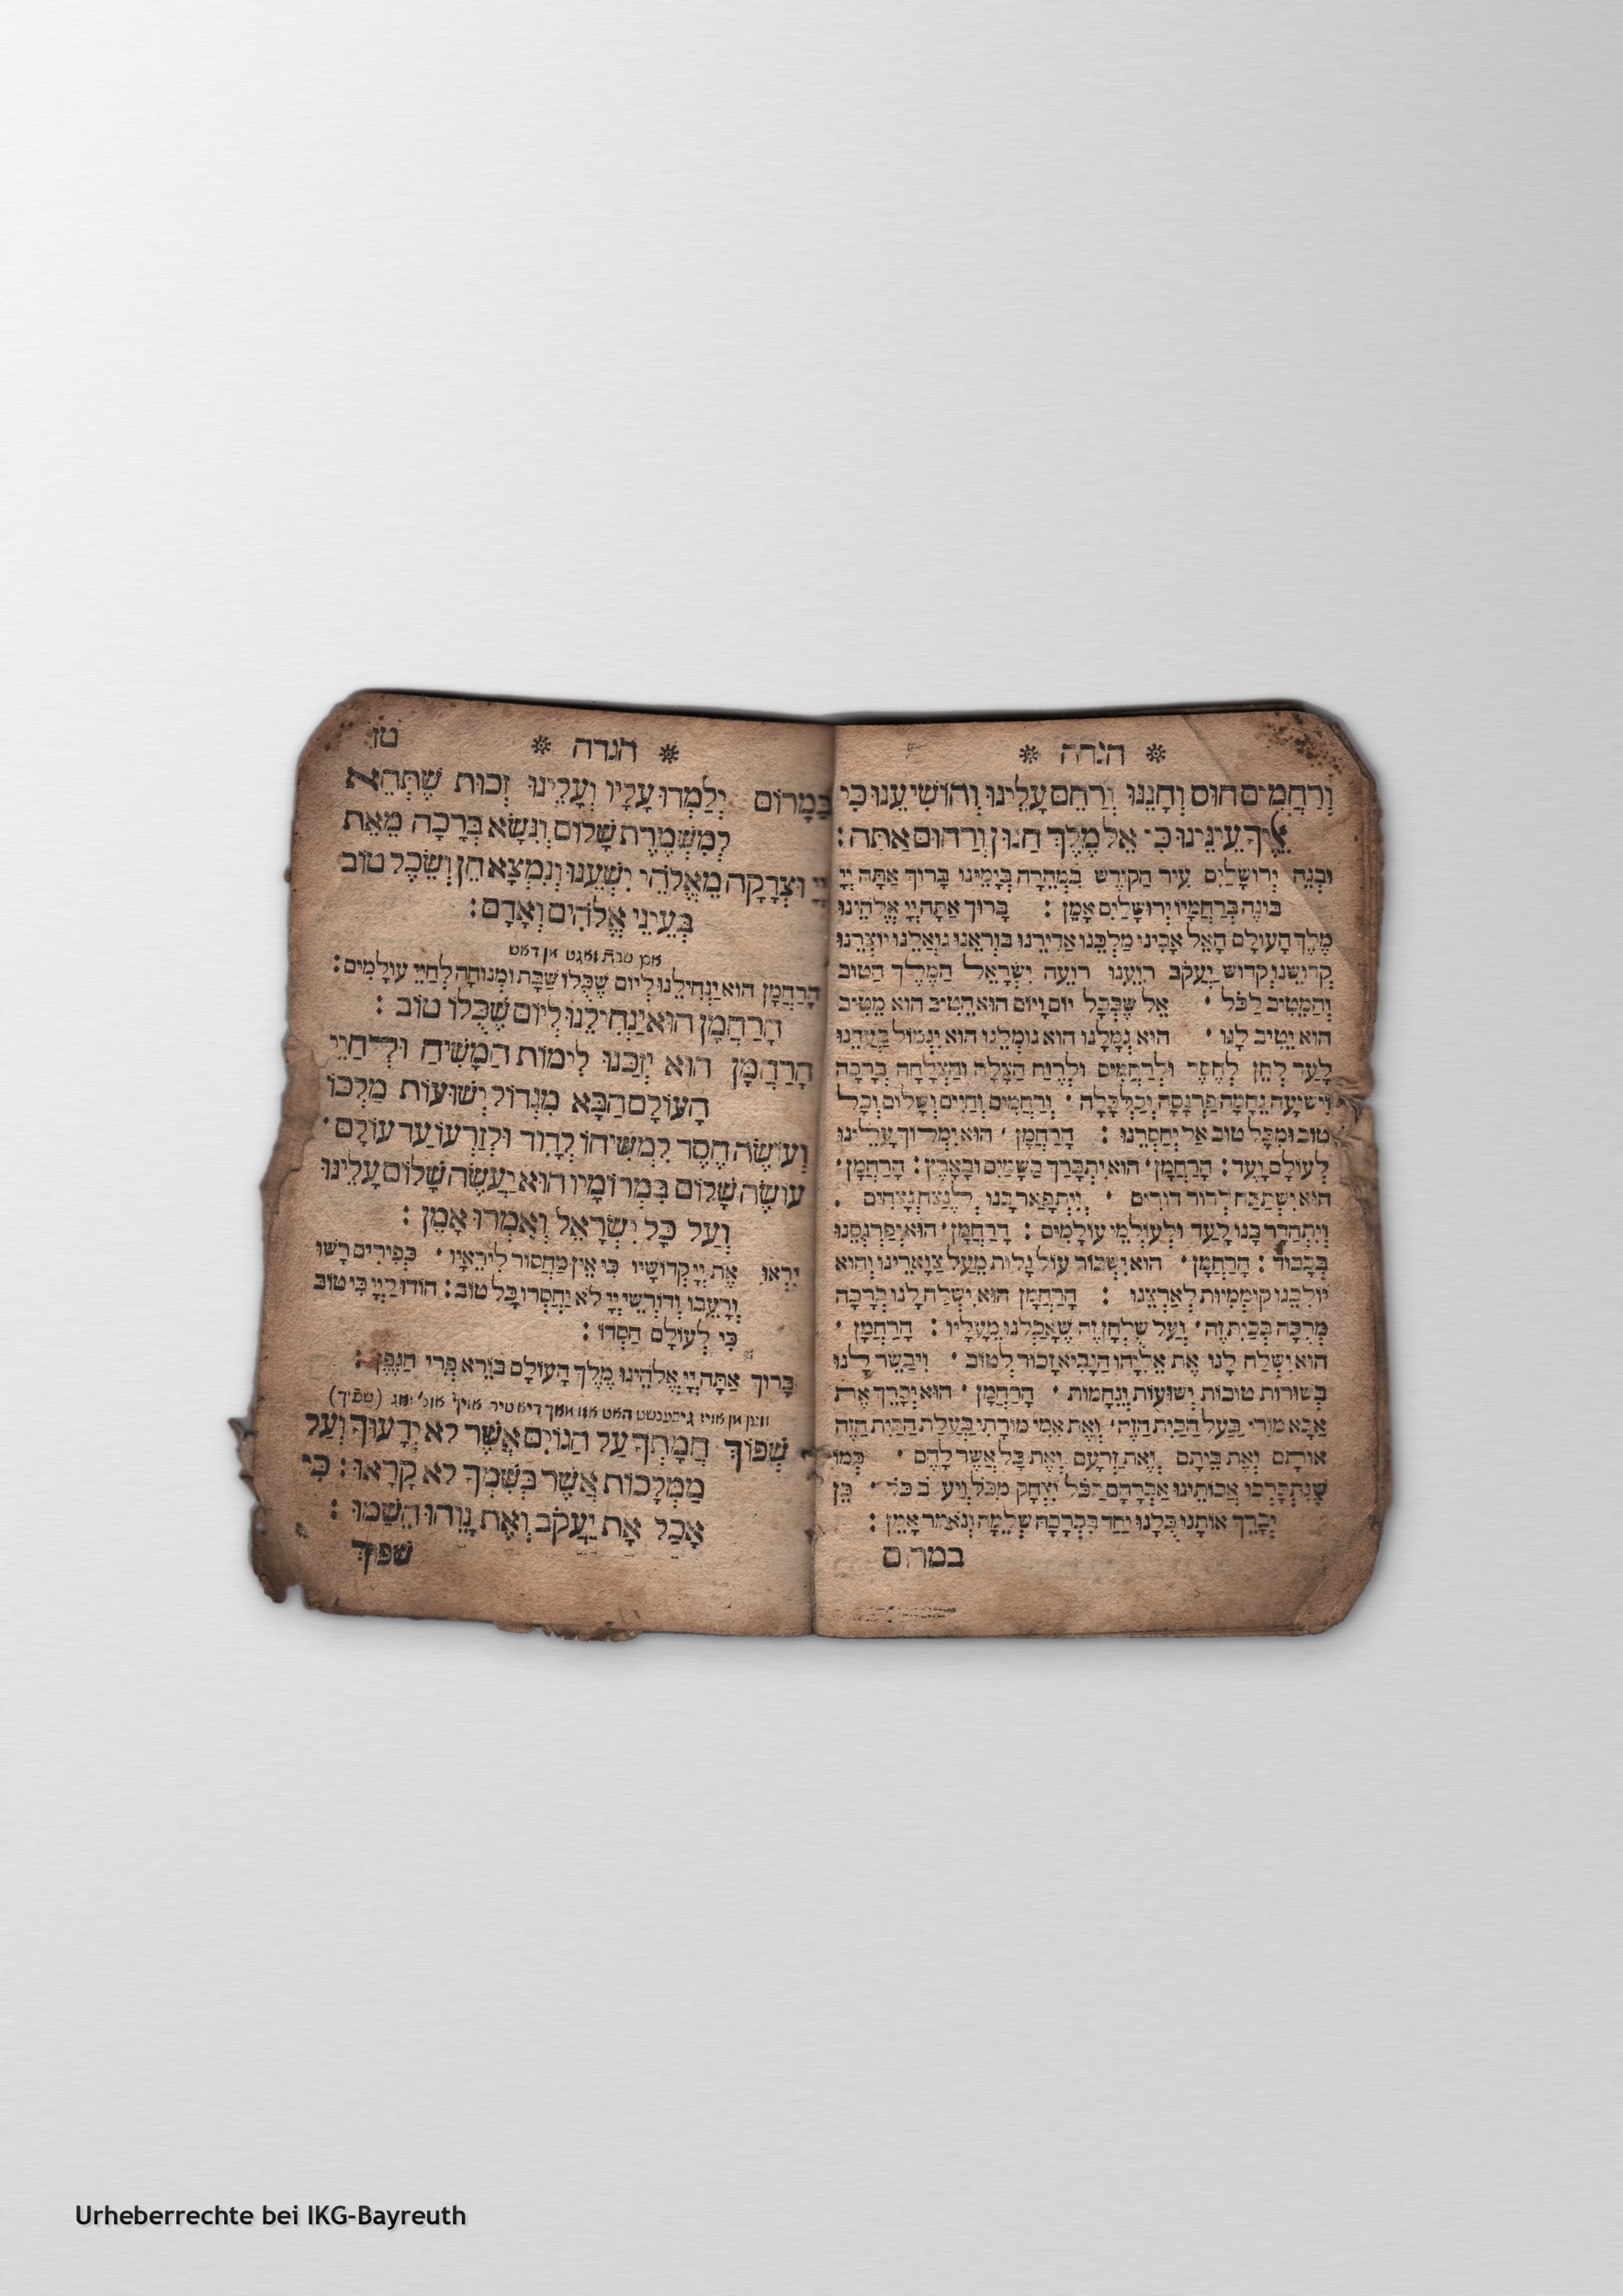 * הגדה *
וְרַחֲמִים חוּם וְחָנֵנוּ וְרַחֵם עָלֵינוּ וְהוֹשִׁיעֵנוּ כִּי
אֵלֶיךָ עֵינֵינוּ כִּי אֵל מֶלֶךְ חַנּוּן וְרַחוּם אַתָּה:
וּבְנֵה יְרוּשָׁלַיִם עִיר הַקּוֹדֶשׁ בִּמְהֵרָה בְּיָמֵינוּ בָּרוּךְ אַתָּה יְיָ
בּוֹנֵה בְּרַחֲמָיו יְרוּשָׁלַיִם אָמֵן: בָּרוּךְ אַתָּה יְיָ אֱלֹהֵינוּ
מֶלֶךְ הָעוֹלָם הָאֵל אָבִינוּ מַלְכֵּנוּ אַדִּירֵנוּ בּוֹרְאֵנוּ גּוֹאֲלֵנוּ יוֹצְרֵנוּ
קְדוֹשֵׁנוּ קְדוֹשׁ יַעֲקֹב רוֹעֵנוּ רוֹעֵה יִשְׂרָאֵל הַמֶּלֶךְ הַטּוֹב
וְהַמֵּטִיב לַכֹּל · אֵל שֶׁבְּכָל יוֹם וָיוֹם הוּא הֵטִיב הוּא מֵטִיב
הוּא יֵטִיב לָנוּ · הוּא גְמָלָנוּ הוּא גוֹמְלֵנוּ הוּא יִגְמוֹל בַּעֲדֵנוּ
לָעַד לְחֵן לְחֶסֶד וּלְרַחֲמִים וּלְרֶוַח הַצָּלָה וְהַצְלָחָה בְּרָכָה
וִישׁוּעָה נֶחָמָה פַּרְנָסָה וְכַלְכָּלָה · וְרַחֲמִים וְחַיִּים וְשָׁלוֹם וְכָל
טוֹב וּמִכָּל טוֹב אַל יְחַסְּרֵנוּ: הָרַחֲמָן · הוּא יִמְלוֹךְ עָלֵינוּ
לְעוֹלָם וָעֶד: הָרַחֲמָן · הוּא יִתְבָּרַךְ בַּשָּׁמַיִם וּבָאָרֶץ: הָרַחֲמָן ·
הוּא יִשְׁתַּבַּח לְדוֹר דּוֹרִים · וְיִתְפָּאַר בָּנוּ לְנֵצַח נְצָחִים .
וְיִתְהַדַּר בָּנוּ לָעַד וּלְעוֹלְמֵי עוֹלָמִים: הָרַחֲמָן · הוּא יְפַרְנְסֵנוּ
בְּכָבוֹד: הָרַחֲמָן · הוּא יִשְׁבּוֹר עוֹל גָּלוּת מֵעַל צַוָּארֵינוּ וְהוּא
יוֹלִכֵנוּ קוֹמְמִיּוּת לְאַרְצֵנוּ: הָרַחֲמָן הוּא יִשְׁלַח לָנוּ בְּרָכָה
מְרֻבָּה בְּבַיִת זֶה · וְעַל שֻׁלְחָן זֶה שֶׁאָכַלְנוּ מֵעָלָיו: הָרַחֲמָן ·
הוּא יִשְׁלַח לָנוּ אֶת אֵלִיָּהוּ הַנָּבִיא זָכוּר לְטוֹב · וִיבַשֶּׂר לָנוּ
בְּשׂוֹרוֹת טוֹבוֹת יְשׁוּעוֹת וְנֶחָמוֹת · הָרַחֲמָן · הוּא יְבָרֵךְ אֶת
אַבָּא מוֹרִי בַּעַל הַבַּיִת הַזֶּה · וְאֶת אִמִּי מוֹרָתִי בַּעֲלַת הַבַּיִת הַזֶּה
אוֹתָם וְאֶת בֵּיתָם וְאֶת זַרְעָם וְאֶת כָּל אֲשֶׁר לָהֶם · כְּמוֹ
שֶׁנִּתְבָּרְכוּ אֲבוֹתֵינוּ אַבְרָהָם יִצְחָק · כֵּן
יְבָרֵךְ אוֹתָנוּ כֻּלָּנוּ יַחַד בִּבְרָכָה שְׁלֵמָה וְנֹאמַר אָמֵן:
במרום
* הגדה * טו
בַּמָּרוֹם יְלַמְּדוּ עָלָיו וְעָלֵינוּ זְכוּת שֶׁתְּהֵא
לְמִשְׁמֶרֶת שָׁלוֹם וְנִשָּׂא בְרָכָה מֵאֵת
יְיָ וּצְדָקָה מֵאֱלֹהֵי יִשְׁעֵנוּ וְנִמְצָא חֵן וְשֵׂכֶל טוֹב
בְּעֵינֵי אֱלֹהִים וְאָדָם:
אם שבת זאגט מן דאס
הָרַחֲמָן הוּא יַנְחִילֵנוּ לְיוֹם שֶׁכֻּלּוֹ שַׁבָּת וּמְנוּחָה לְחַיֵּי עוֹלָמִים:
הָרַחֲמָן הוּא יַנְחִילֵנוּ לְיוֹם שֶׁכֻּלּוֹ טוֹב:
הָרַחֲמָן הוּא יְזַכֵּנוּ לִימוֹת הַמָּשִׁיחַ וּלְחַיֵּי
הָעוֹלָם הַבָּא מִגְדּוֹל יְשׁוּעוֹת מַלְכּוֹ
וְעוֹשֶׂה חֶסֶד לִמְשִׁיחוֹ לְדָוִד וּלְזַרְעוֹ עַד עוֹלָם ·
עוֹשֶׂה שָׁלוֹם בִּמְרוֹמָיו הוּא יַעֲשֶׂה שָׁלוֹם עָלֵינוּ
וְעַל כָּל יִשְׂרָאֵל וְאִמְרוּ אָמֵן:
יִרְאוּ אֶת יְיָ קְדוֹשָׁיו כִּי אֵין מַחְסוֹר לִירֵאָיו · כְּפִירִים רָשׁוּ
וְרָעֵבוּ וְדוֹרְשֵׁי יְיָ לֹא יַחְסְרוּ כָל טוֹב: הוֹדוּ לַייָ כִּי טוֹב
כִּי לְעוֹלָם חַסְדּוֹ:
בָּרוּךְ אַתָּה יְיָ אֱלֹהֵינוּ מֶלֶךְ הָעוֹלָם בּוֹרֵא פְּרִי הַגֶּפֶן:
האט דיא טיר אויף אונ' זאג (שפוך)
שְׁפוֹךְ חֲמָתְךָ עַל הַגּוֹיִם אֲשֶׁר לֹא יְדָעוּךָ וְעַל
מַמְלָכוֹת אֲשֶׁר בְּשִׁמְךָ לֹא קָרָאוּ: כִּי
אָכַל אֶת יַעֲקֹב וְאֶת נָוֵהוּ הֵשַׁמּוּ:
שפוך
Urheberrechte bei IKG-Bayreuth